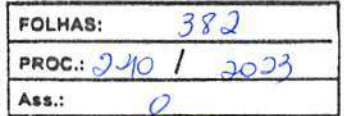 FOLHAS: 382
PROC.: 240 / 2023
Ass.: